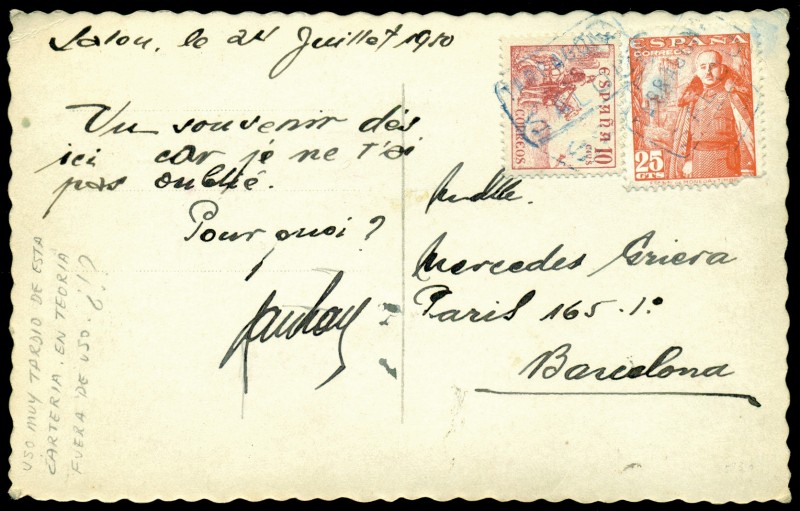 Salou, le 24 Juillet 1950
Un souvenir dès
ici car je ne t'ai
pas oublié.
Pourquoi?
Mdlle.
Mercedes Griera
Paris 165-1º
Barcelona
ESPAÑA 10 CTS
CORREOS
ESPAÑA
CORREOS
25
CTS
TARRAGONA
USO MUY TARDIO DE ESTA
CARTERIA. EN TEORIA
FUERA DE USO. ¿!?